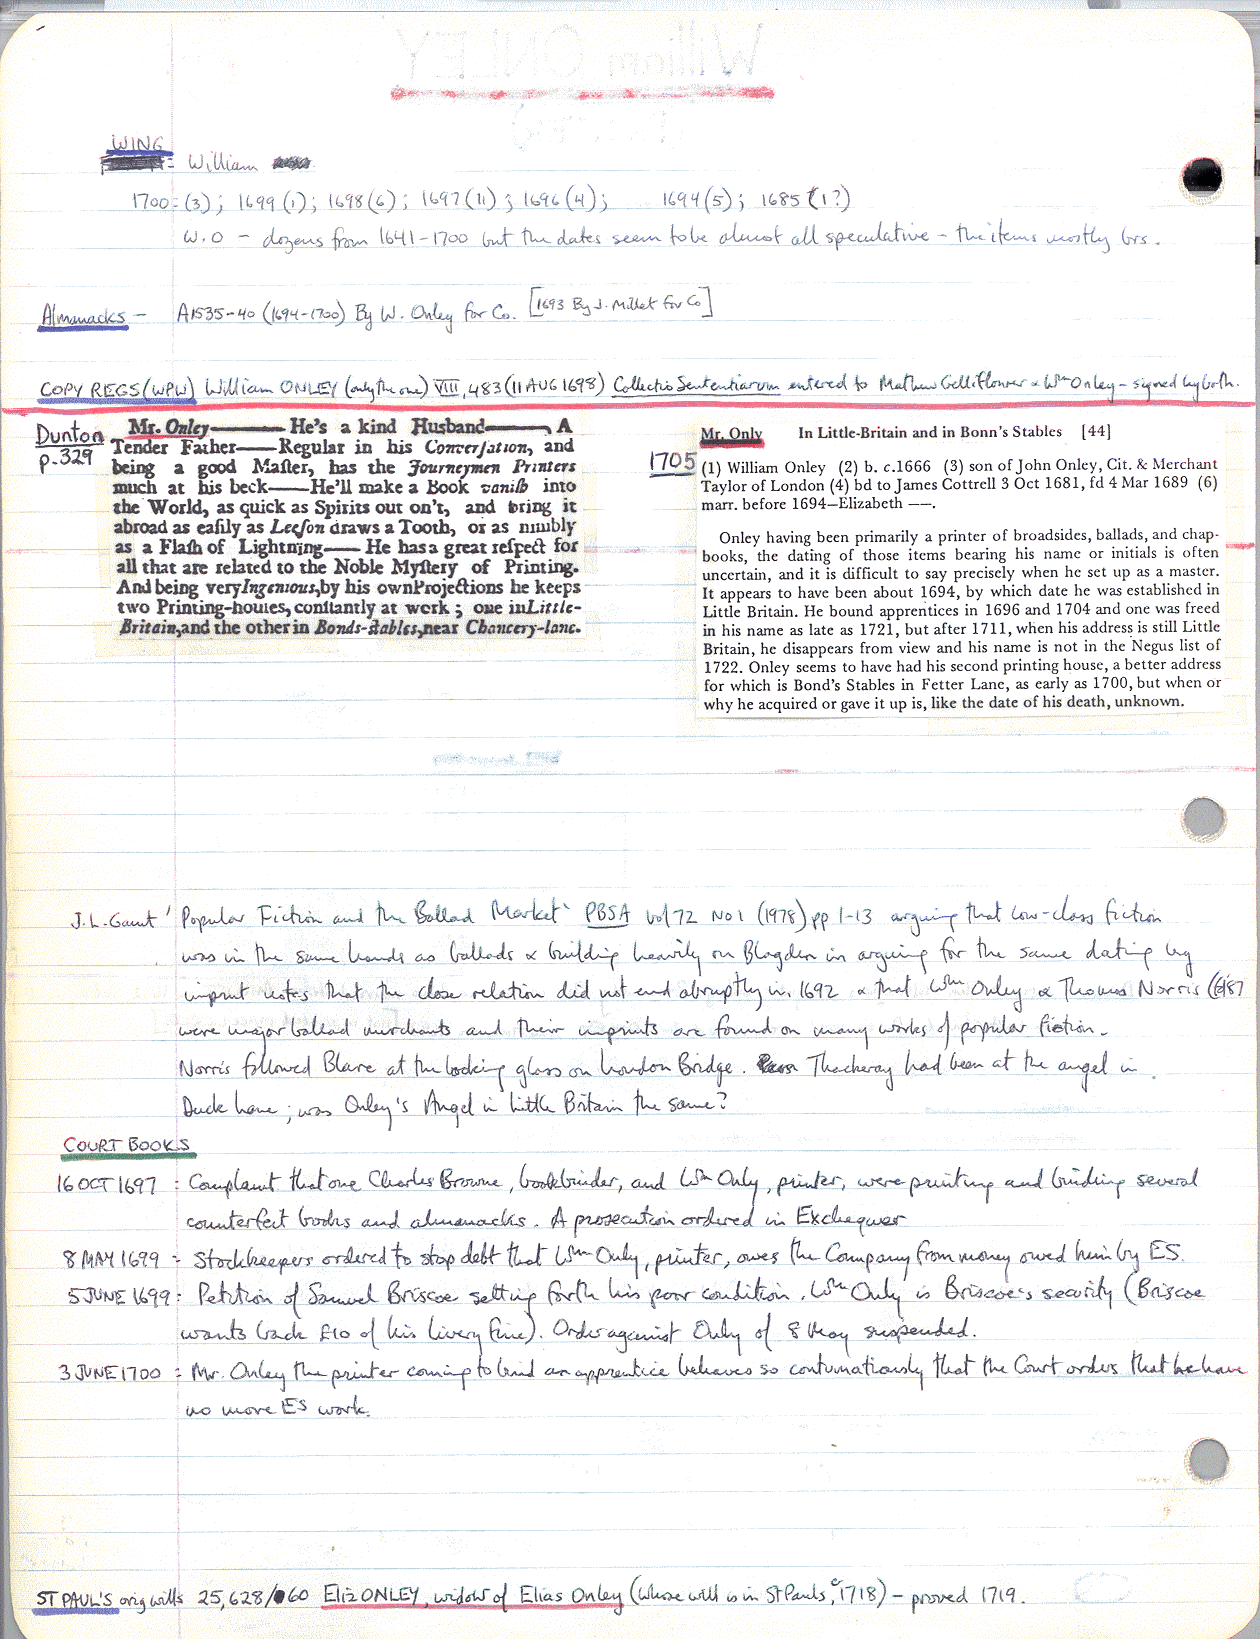 WING
William
1700=(3); 1699(1); 1698(6); 1697(11); 1696(4); 1694(5); 1685(1?)
W.O – dozens from 1641–1700 but the dates seem to be almost all speculative – the items mostly brs.
Almanacks – A1535-40 (1694-1700) By W. Onley for Co. [1693 By J. Millet for Co]
COPY REGS (WPW) William ONLEY (only the one) VIII, 483 (11 AUG 1698) Collectio Sententiarum entered to Mathew Gelliflower & Wm Onley – signed by both.
Dunton
p.329
Mr. Onley—— He's a kind Husband——A
Tender Father——Regular in his Converſation, and
being a good Maſter, has the Journeymen Printers
much at his beck——He'll make a Book vaniſh into
the World, as quick as Spirits out on't, and bring it
abroad as eaſily as Leeſon draws a Tooth, or as nimbly
as a Flaſh of Lightning—— He has a great reſpect for
all that are related to the Noble Myſtery of Printing.
And being very Ingenious, by his own Projections he keeps
two Printing-houſes, conſtantly at work; one in Little-
Britain, and the other in Bonds-ſtables, near Chancery-lane.
1705
Mr. Only In Little-Britain and in Bonn's Stables [44]
(1) William Onley (2) b. c.1666 (3) son of John Onley, Cit. & Merchant
Taylor of London (4) bd to James Cottrell 3 Oct 1681, fd 4 Mar 1689 (6)
marr. before 1694—Elizabeth ——.
Onley having been primarily a printer of broadsides, ballads, and chap-
books, the dating of those items bearing his name or initials is often
uncertain, and it is difficult to say precisely when he set up as a master.
It appears to have been about 1694, by which date he was established in
Little Britain. He bound apprentices in 1696 and 1704 and one was freed
in his name as late as 1721, but after 1711, when his address is still Little
Britain, he disappears from view and his name is not in the Negus list of
1722. Onley seems to have had his second printing house, a better address
for which is Bond's Stables in Fetter Lane, as early as 1700, but when or
why he acquired or gave it up is, like the date of his death, unknown.
J.L. Gaunt 'Popular Fiction and the Ballad Market' PBSA vol 72 No 1 (1978) pp 1-13 arguing that low-class fiction
was in the same hands as ballads & building heavily on Blagden in arguing for the same dating by
imprint notes that the close relation did not end abruptly in 1692 & that Wm Onley & Thomas Norris
were major ballad merchants and their imprints are found on many works of popular fiction.
Norris followed Blare at the looking glass on London Bridge. Thackeray had been at the angel in
Duck Lane; was Onley's Angel in Little Britain the same?
COURT BOOKS
16 OCT 1697 : Complaint that one Charles Browne, bookbinder, and Wm Only, printer, were printing and binding several
counterfeit books and almanacks. A prosecution ordered in Exchequer
8 MAY 1699 : Stockkeepers ordered to stop debt that Wm Only, printer, owes the Company from money owed him by ES.
5 JUNE 1699 : Petition of Samuel Briscoe setting forth his poor condition. Wm Only is Briscoe's security (Briscoe
wants back £10 of his livery fine). Order against Only of 8 May suspended.
3 JUNE 1700 : Mr. Onley the printer coming to bind an apprentice behaves so contumatiously that the Court orders that he have
no more ES work.
ST PAUL'S orig wills 25,628/60 Eliz ONLEY, widow of Elias Onley (whose will is in St Pauls, c1718) – proved 1719.